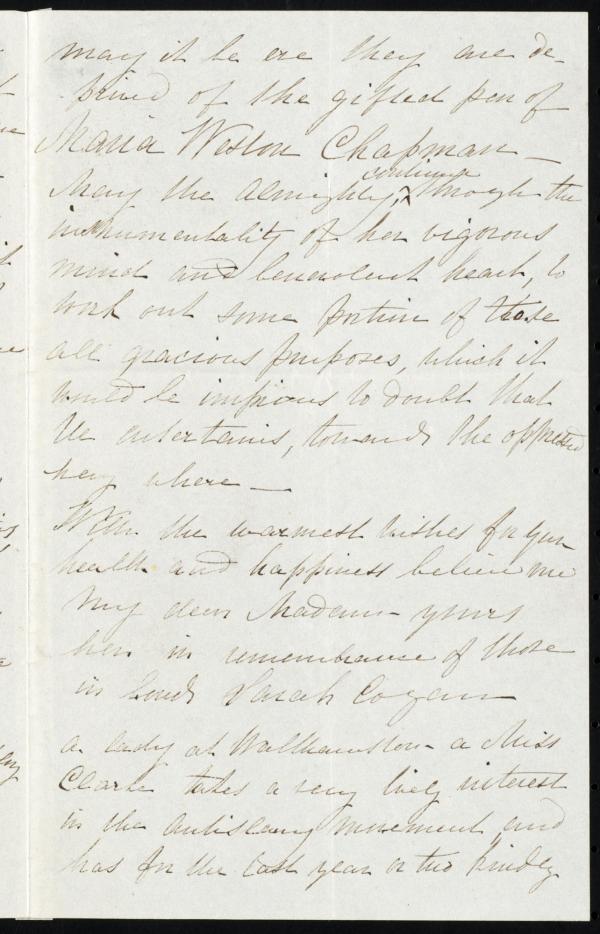 may it be ere they are de-
prived of the gifted pen of
Maria Weston Chapman —
May the Almighty, continue through the
instrumentality of her vigorous
mind and benevolent heart, to
work out some portion of those
all gracious purposes, which it
would be impious to doubt that
He entertains, towards the oppressed
every where —
With the warmest wishes for your
health and happiness believe me
My dear Madam yours
in remembrance of those
in bonds Sarah Cogan
a lady at Walthamstow - a Miss
Clark takes a very lively interest
in the antislavery movement and
has for the last year or two kindly